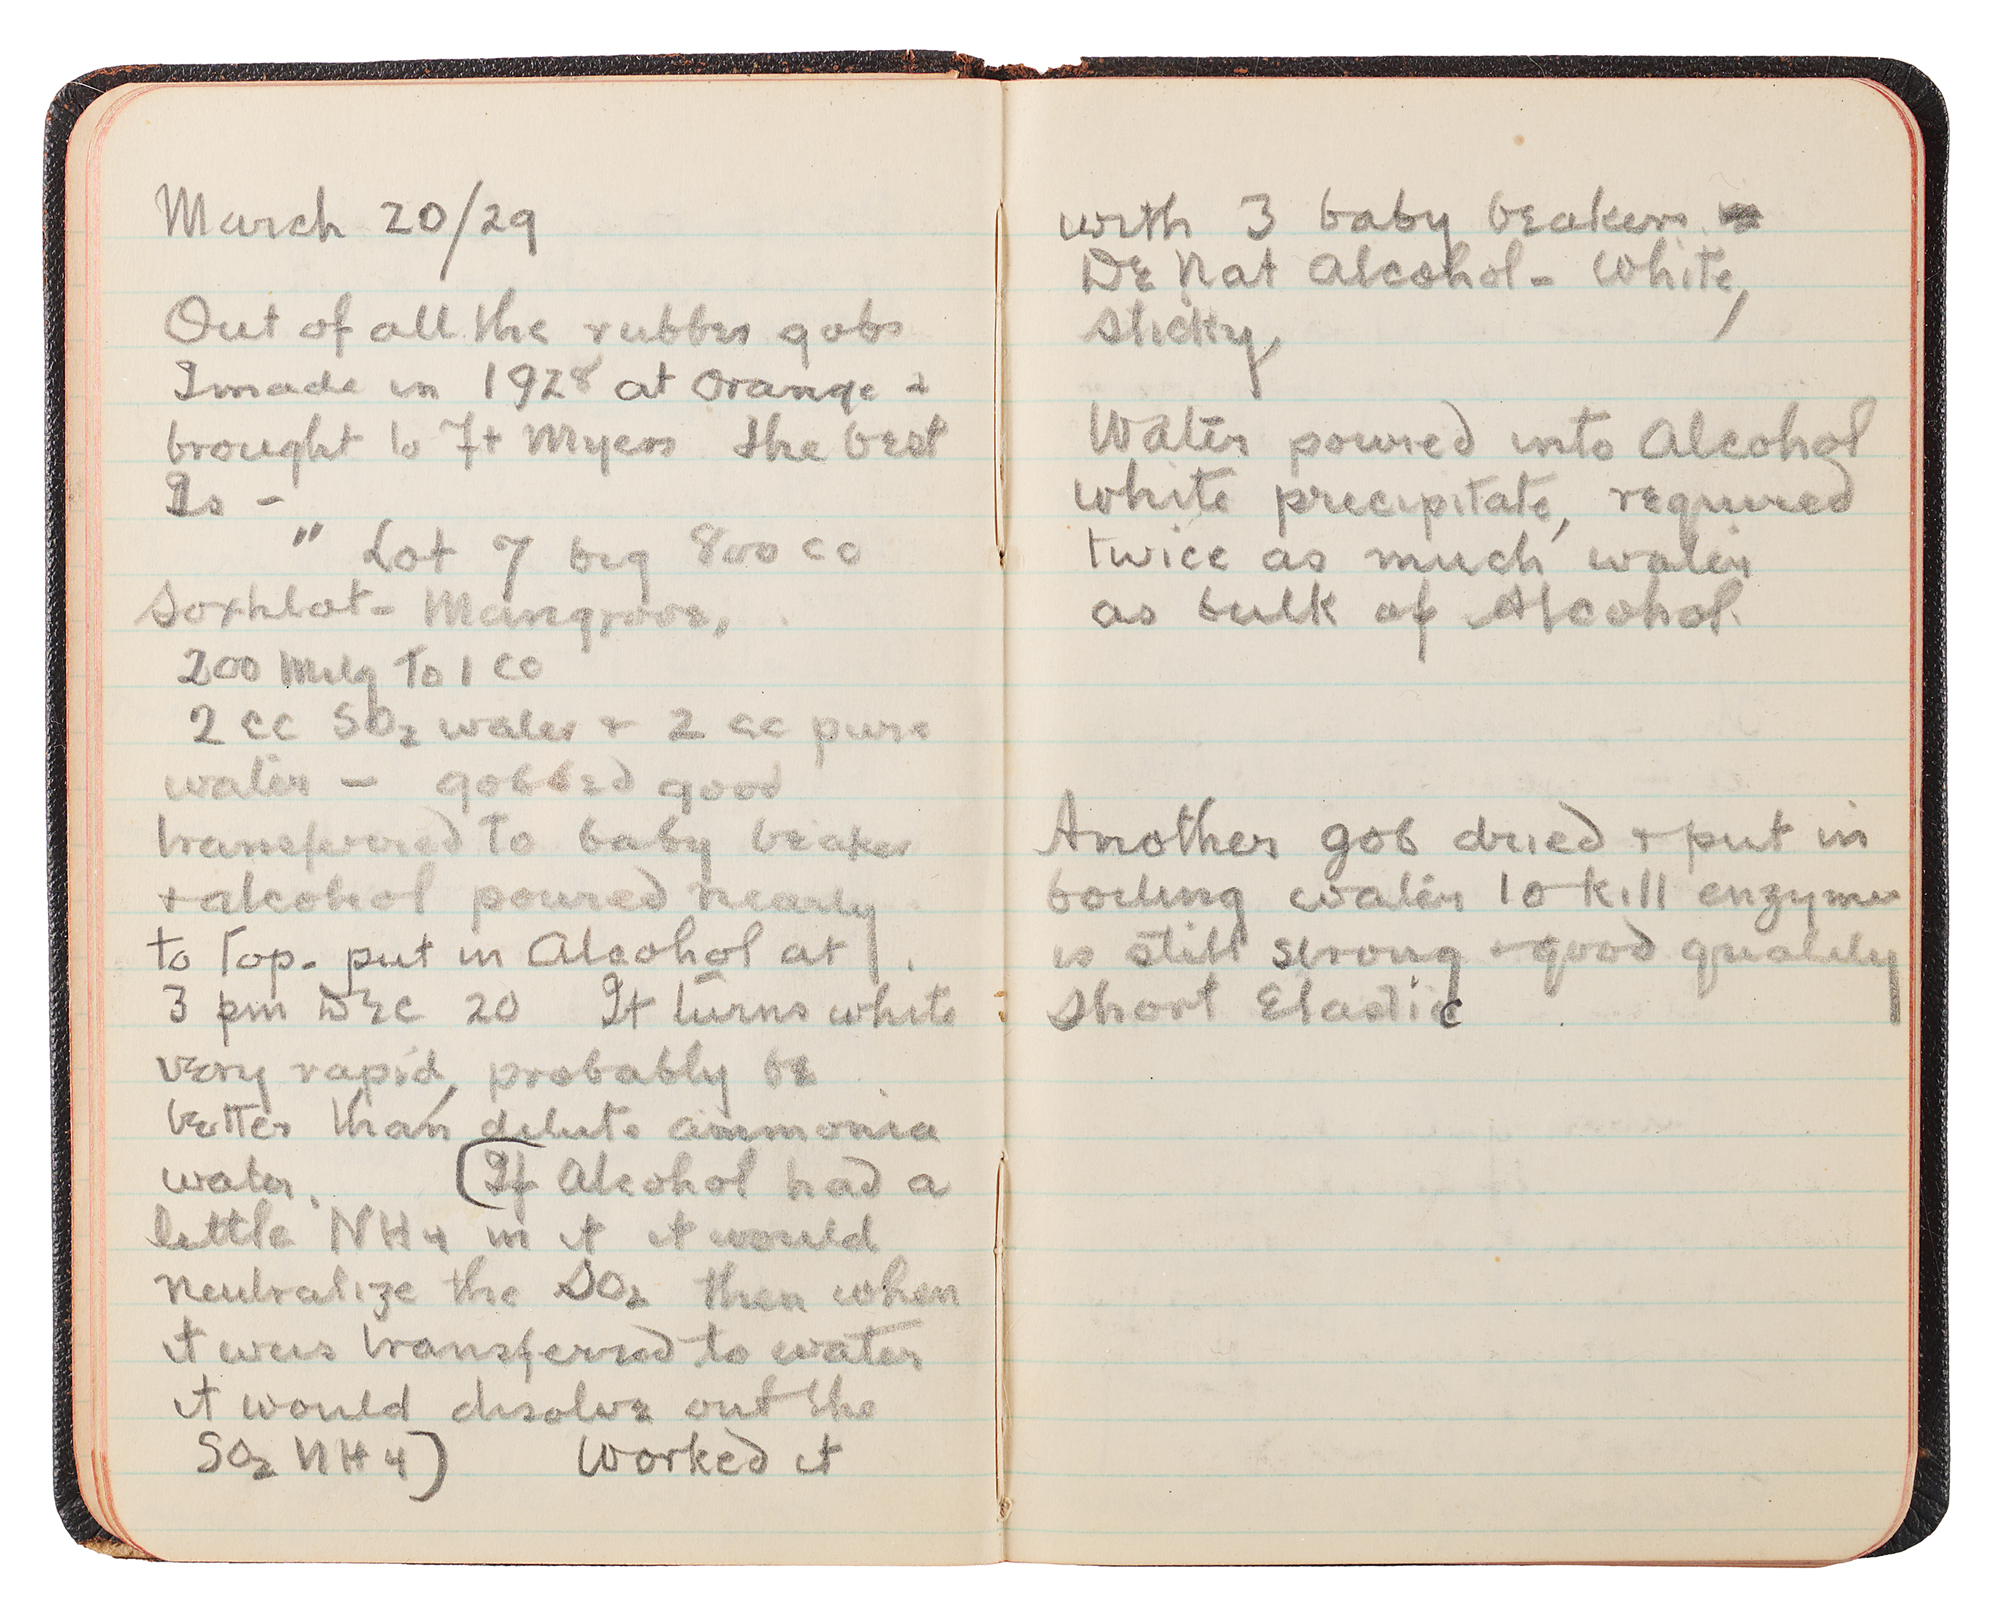 March 20/29
Out of all the rubber gobs
I made in 1928 at Orange +
brought to Ft Myers the best
Is -
" Lot 7 big 800 cc
Soxhlat - Mangrove,
200 Milg To 1 cc
2 cc SO2 water + 2 cc pure
water - gobbed good
transferred To baby beaker
+ alcohol poured nearly
to Top. put in Alcohol at
3 pm DEc 20 It turns white
very rapid, probably be
better than dilute ammonia
water. (If Alcohol had a
little NH4 in it it would
neutralize the SO2 then when
it was transferred to water
it would disolve out the
SO2 NH4) Worked it
with 3 baby beakers
De Nat Alcohol - White,
sticky,
Water poured into Alcohol
white precipitate, required
twice as much water
as bulk of Alcohol.
Another gob dried + put in
boiling water to kill enzyme
is still strong + good quality
short Elastic